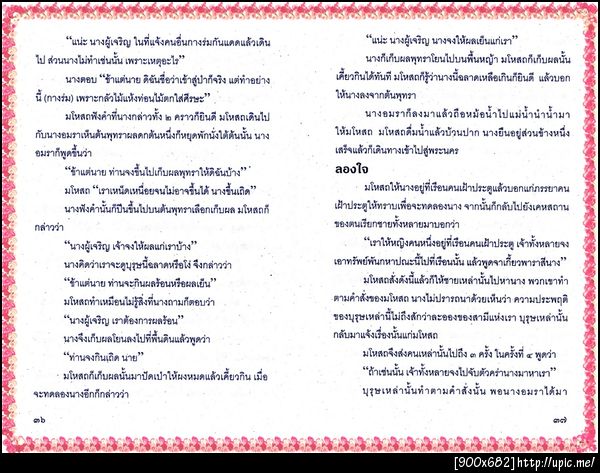 “แน่ะ นางผู้เจริญ ในที่แจ้งคนอื่นกางร่มกันแดดแล้วเดิน
ไป ส่วนนางไม่ทำเช่นนั้น เพราะเหตุอะไร”
นางตอบ “ข้าแต่นาย ดิฉันชื่อว่าเข้าสู่ป่าก็จริง แต่ทำอย่าง
นี้ (กางร่ม) เพราะกลัวไม้แห้งท่อนไม้ตกใส่ศีรษะ”
มโหสถฟังคำที่นางกล่าวทั้ง ๒ คราวก็ยินดี มโหสถเดินไป
กับนางอมราเห็นต้นพุทราผลดกต้นหนึ่งก็หยุดพักนั่งใต้ต้นนั้น นาง
อมราก็พูดขึ้นว่า
“ข้าแต่นาย ท่านจงขึ้นไปเก็บผลพุทราให้ดิฉันบ้าง”
มโหสถ “เราเหน็ดเหนื่อยจนไม่อาจขึ้นได้ นางขึ้นเถิด”
นางฟังคำนั้นก็ปีนขึ้นไปบนต้นพุทราเลือกเก็บผล มโหสถก็
กล่าวว่า
“นางผู้เจริญ เจ้าจงให้ผลแก่เราบ้าง”
นางคิดว่าเราจะดูบุรุษนี้ฉลาดหรือโง่ จึงกล่าวว่า
“ข้าแต่นาย ท่านจะกินผลร้อนหรือผลเย็น”
มโหสถทำเหมือนไม่รู้สิ่งที่นางถามก็ตอบว่า
“นางผู้เจริญ เราต้องการผลร้อน”
นางจึงเก็บผลโยนลงไปที่พื้นดินแล้วพูดว่า
“ท่านจงกินเถิด นาย”
มโหสถก็เก็บผลนั้นมาปัดเป่าให้ผงหมดแล้วเคี้ยวกิน เมื่อ
จะทดลองนางอีกก็กล่าวว่า
๓๖
“แน่ะ นางผู้เจริญ นางจงให้ผลเย็นแก่เรา”
นางก็เก็บผลพุทราโยนไปบนพื้นหญ้า มโหสถก็เก็บผลนั้น
เคี้ยวกินได้ทันที มโหสถก็รู้ว่านางนี้ฉลาดเหลือเกินก็ยินดี แล้วบอก
ให้นางลงจากต้นพุทรา
นางอมราก็ลงมาแล้วถือหม้อน้ำไปแม่น้ำนำน้ำมา
ให้มโหสถ มโหสถดื่มน้ำแล้วบ้วนปาก นางยืนอยู่ส่วนข้างหนึ่ง
เสร็จแล้วก็เดินทางเข้าไปสู่พระนคร
ลองใจ
มโหสถให้นางอยู่ที่เรือนคนเฝ้าประตูแล้วบอกแก่ภรรยาคน
เฝ้าประตูให้ทราบเพื่อจะทดลองนาง จากนั้นก็กลับไปยังเคหสถาน
ของตนเรียกชายทั้งหลายมาบอกว่า
“เราให้หญิงคนหนึ่งอยู่ที่เรือนคนเฝ้าประตู เจ้าทั้งหลายจง
เอาทรัพย์พันกหาปณะนี้ไปที่เรือนนั้น แล้วพูดจาเกี้ยวพาราสีนาง”
มโหสถสั่งดังนี้แล้วก็ให้ชายเหล่านั้นไปหานาง พวกเขาทำ
ตามคำสั่งของมโหสถ นางไม่ปรารถนาด้วยเห็นว่า ความประพฤติ
ของบุรุษเหล่านี้ไม่ถึงสักว่าละอองของสามีแห่งเรา บุรุษเหล่านั้น
กลับมาแจ้งเรื่องนั้นแก่มโหสถ
มโหสถจึงส่งคนเหล่านั้นไปถึง ๓ ครั้ง ในครั้งที่ ๔ พูดว่า
“ถ้าเช่นนั้น เจ้าทั้งหลายจงไปจับตัวคร่านางมาหาเรา”
บุรุษเหล่านั้นทำตามคำสั่งนั้น พอนางอมราได้มา
๓๗
[900x682]http://upic.me/